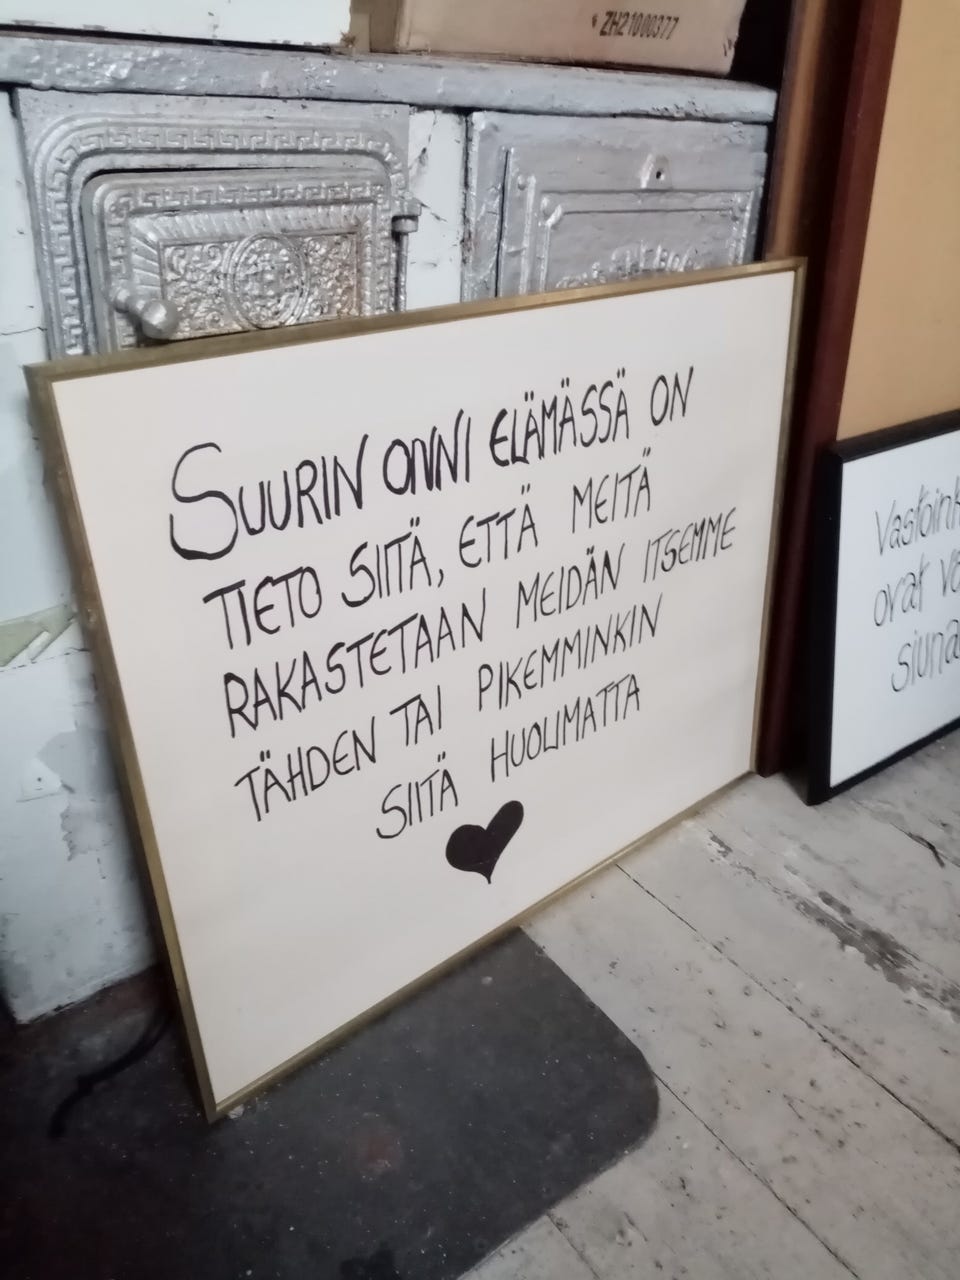 ZH21000377
SUURIN ONNI ELÄMÄSSÄ ON
TIETO SIITÄ, ETTÄ MEITÄ
RAKASTETAAN MEIDÄN ITSEMME
TÄHDEN TAI PIKEMMINKIN
SIITÄ HUOLIMATTA
Vastoink
ovat va
siuna